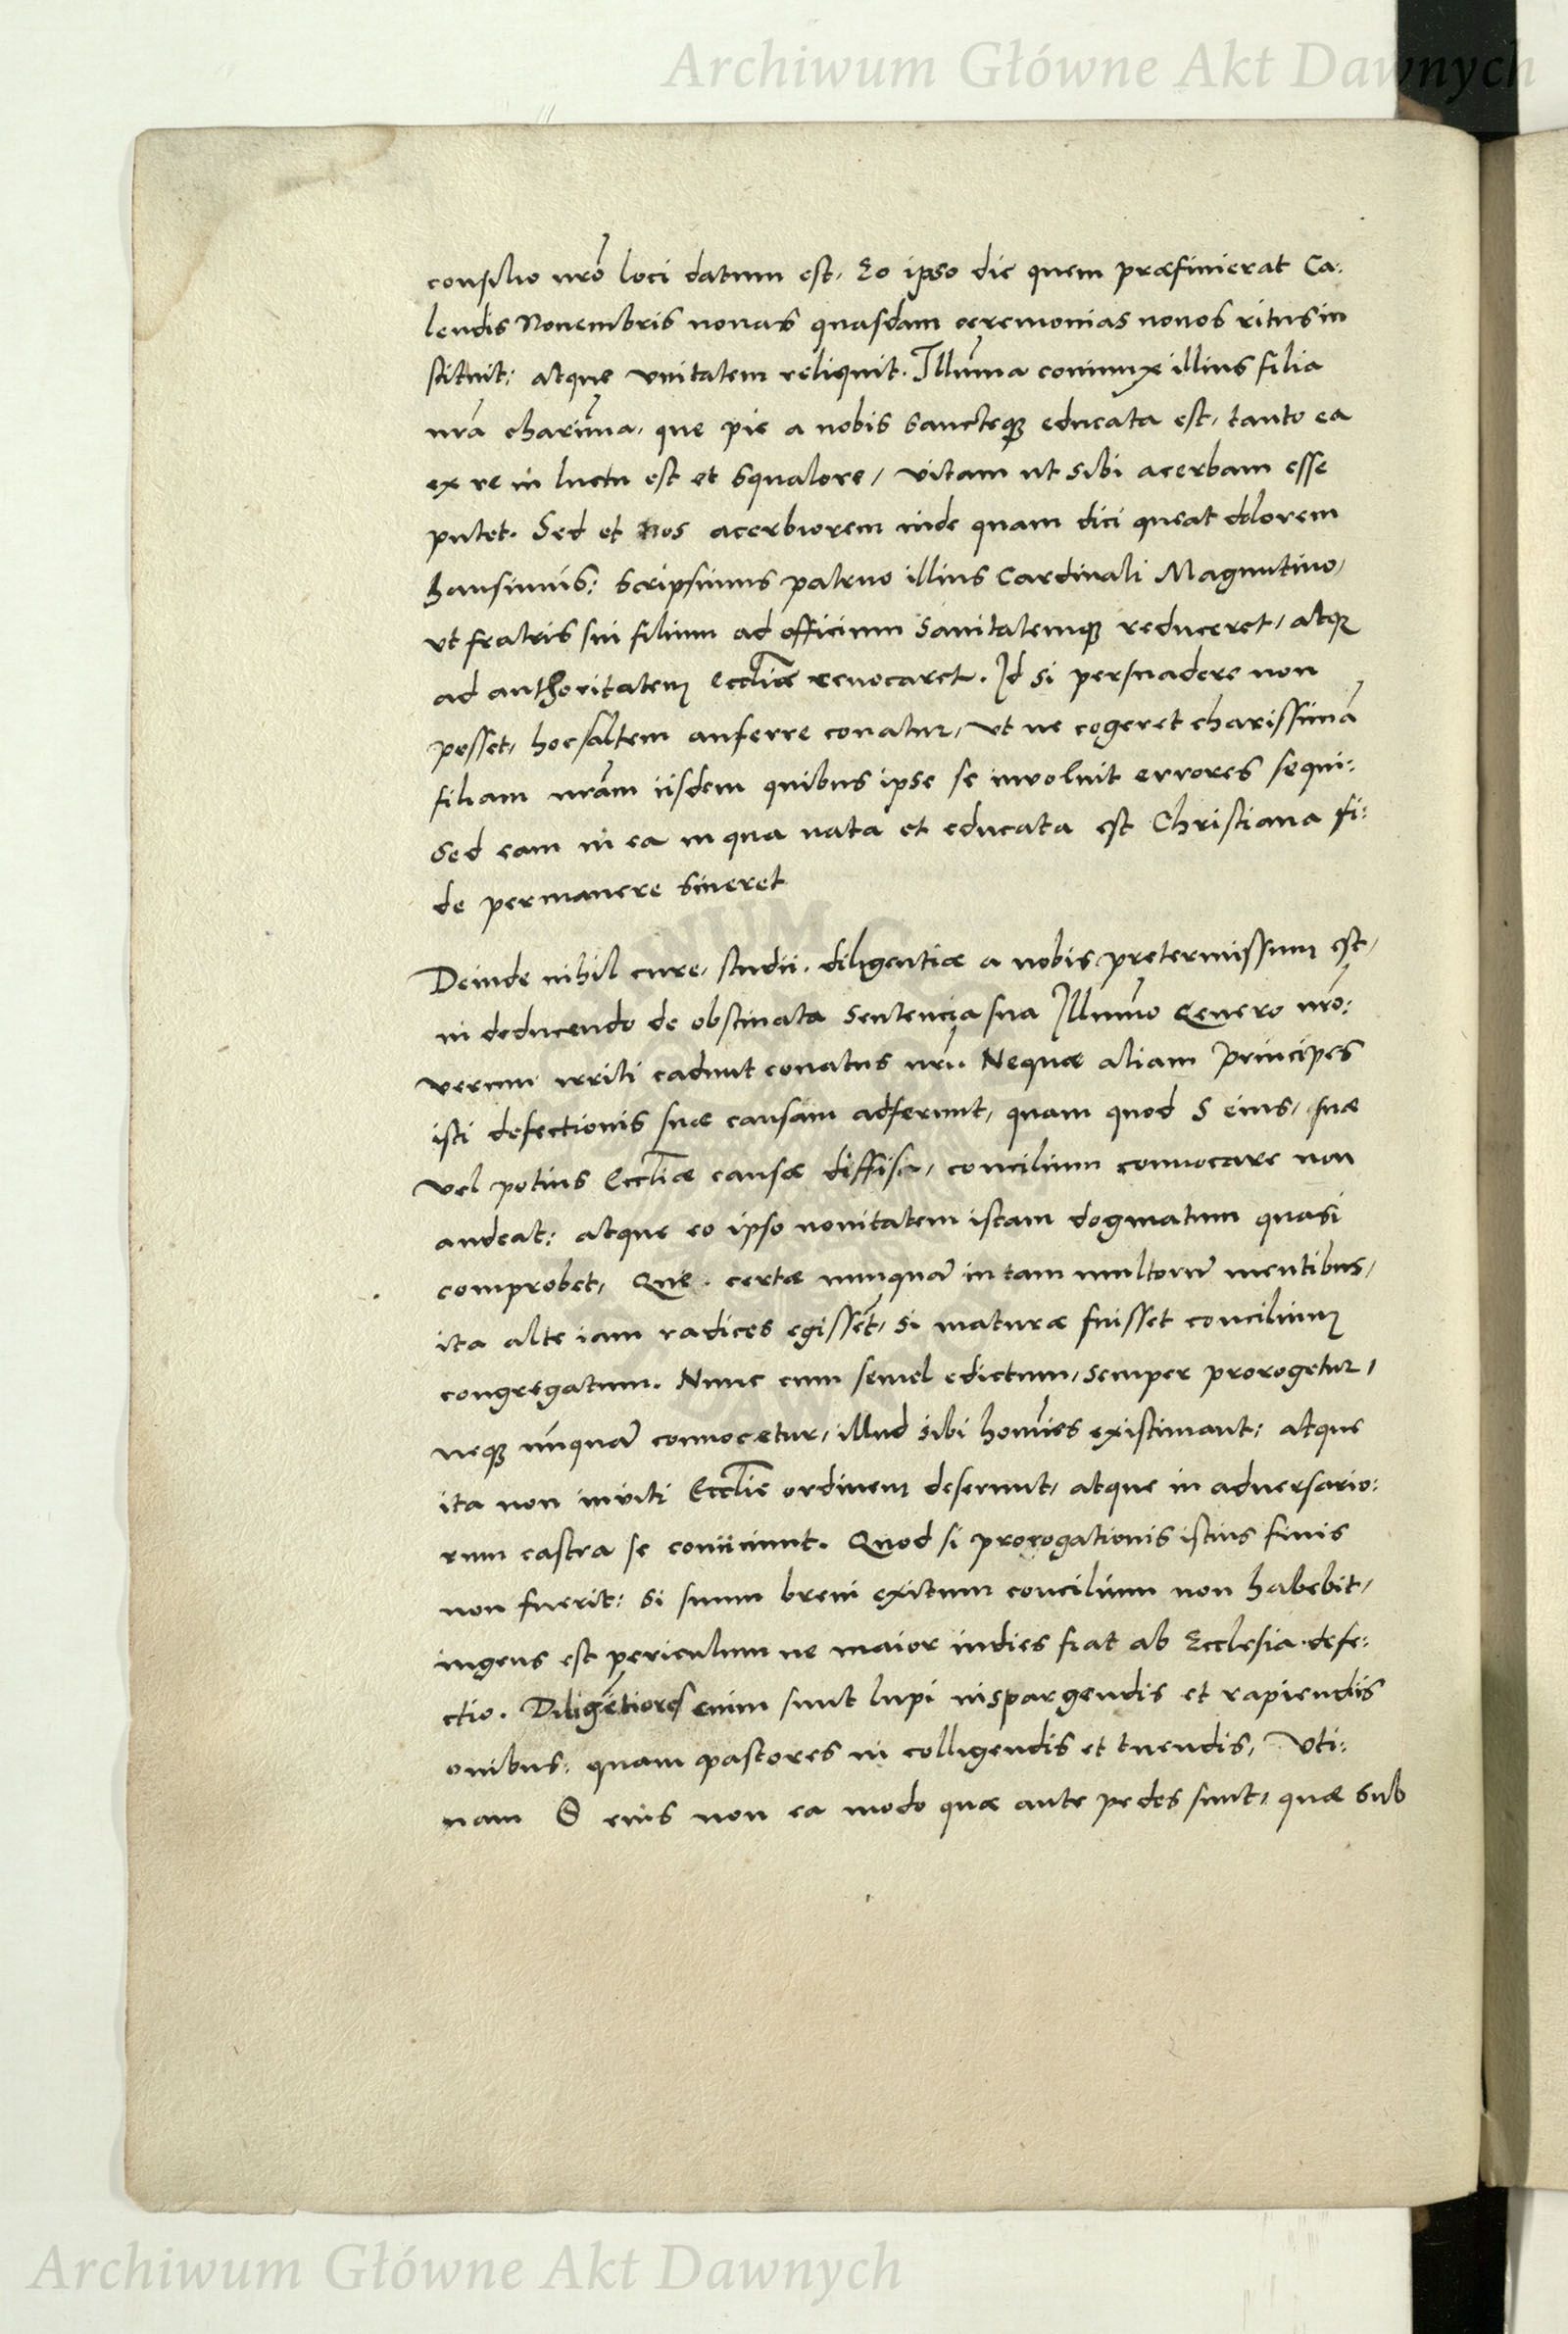 Archiwum Główne Akt Dawnych
consilio nr̃o loci datum est, Eo ipso die quem præfinierat Ca:
lendis Novembris novas quasdam ceremonias novos ritus in
stituit: atque unitatem reliquit. Illum̃a coniunx illius filia
nr̃a charim̃a, que pie a nobis sancteq3 educata est, tanto ea
ex re in luctu est et squalore, vitam ut sibi acerbam esse
putet. Sed et nos acerbiorem inde quam dici queat dolorem
hausimus: scripsimus patruo illius Cardinali Maguntino,
ut fratris sui filium ad officium sanitatemq3 reduceret, atq3
ad authoritatem Eccl̃iæ revocaret. Id si persuadere non
posset, hoc saltem auferre conatur, ut ne cogeret charissimã
filiam nr̃am iisdem quibus ipse se involuit errores sequi:
Sed eam in ea in qua nata et educata est Christiana fi:
de permanere sineret
Deinde nihil cure, studii, diligentiæ a nobis pretermissum est,
in deducendo de obstinata sentencia sua Illum̃o Genero nr̃o:
verum irriti cadunt conatus nr̃i. Nequæ aliam Principes
isti defectionis suæ causam adferunt, quam quod S eius, suæ
vel potius Eccl̃iæ causæ diffisa, concilium convocare non
audeat: atque eo ipso novitatem istam dogmatum quasi
comprobet, Que certæ nunquã in tam multorũ mentibus,
ita alte iam radices egissẽt, si maturæ fuisset concilium
congregatum. Nunc cum semel edictum, semper prorogetur,
neq3 unquã convocetur, illud sibi homĩes existimant: atque
ita non inviti Eccl̃ie ordinem deserunt, atque in adversario:
rum castra se coniiciunt. Quod si prorogationis istius finis
non fuerit: si suum brevi exitum concilium non habebit,
ingens est periculum ne maior indies fiat ab Ecclesia defe:
ctio. Diligẽtiores enim sunt lupi in spargendis et rapiendis
ovibus: quam pastores in colligendis et tuendis, Uti:
nam S eius non ea modo quæ ante pedes sunt, quæ sub
Archiwum Główne Akt Dawnych